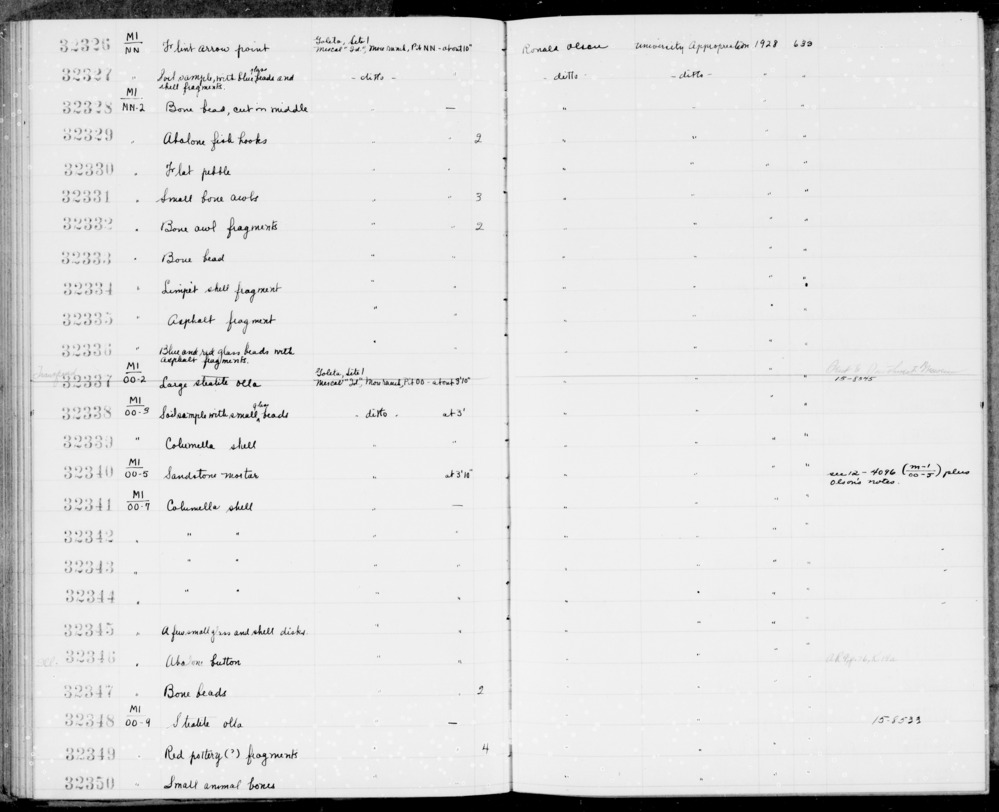 32326 MI/NN Flint arrow point Goleta, Site 1 Mescal "Isl", Mow ranch, Pit NN - about 10" Ronald Olson University Appropriation 1928 633
32327 " Soil sample, with blue glass beads and shell fragments. - ditto - " - ditto - - ditto - " "
32328 MI/NN-2 Bone bead, cut in middle " — " " " "
32329 " Abalone fish hooks " " 2 " " " "
32330 " Flat pebble " " " " " "
32331 " Small bone awls " " 3 " " " "
32332 " Bone awl fragments " " 2 " " " "
32333 " Bone bead " " " " " "
32334 " Limpet shell fragment " " " " " "
32335 " Asphalt fragment " " " " " "
32336 " Blue and red glass beads with asphalt fragments. " " " " " "
32337 MI/OO-2 Large steatite olla Goleta, Site 1 Mescal "Isl", Mow ranch, Pit OO - about 3'10" " " " " 15-8245
32338 MI/OO-3 Soil sample with small glass beads - ditto - at 3' " " " "
32339 " Columella shell " " " " " "
32340 MI/OO-5 Sandstone mortar " at 3'10" " " " " see 12-4096 (M-1/OO-5) plus Olson's notes.
32341 MI/OO-7 Columella shell " — " " " "
32342 " " " " " " " " "
32343 " " " " " " " " "
32344 " " " " " " " " "
32345 " A few small glass and shell disks. " " " " " "
32346 " Abalone button " " " " " "
32347 " Bone beads " " 2 " " " "
32348 MI/OO-9 Steatite olla " — " " " " 15-8533
32349 " Red pottery (?) fragments " " 4 " " " "
32350 " Small animal bones " " " " " "